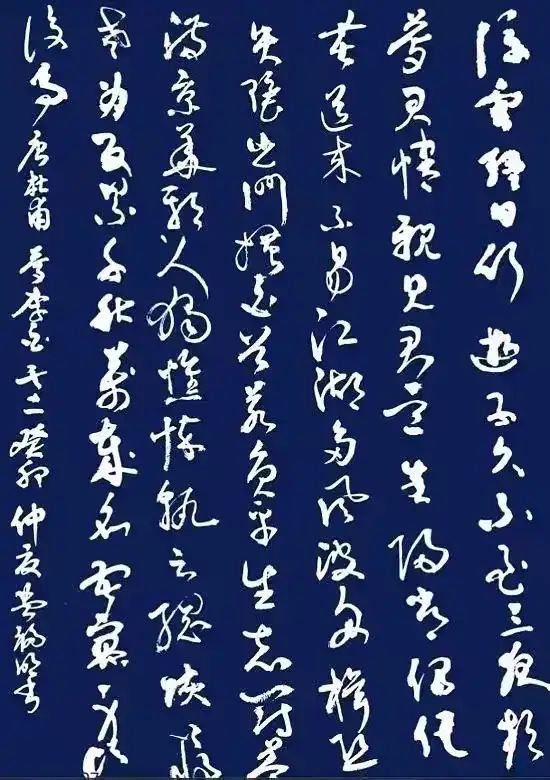 浮雲終日行遊子久不至三夜頻
夢君情親見君意告歸常局促
苦道來不易江湖多風波舟楫恐
失墜出門搔白首若負平生志冠蓋
滿京華斯人獨憔悴孰云網恢恢將
老身反累千秋萬歲名寂寞身
後事唐杜甫夢李白其二癸卯仲夏書